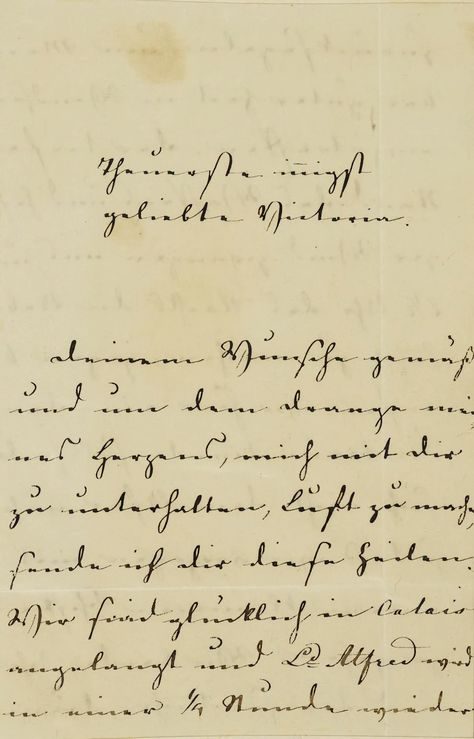 Theuerste innigst
geliebte Victoria.
Deinem Wunsche gemäß
und um dem Drange mei
nes Herzens, mich mit Dir
zu unterhalten, Luft zu mache
sende ich Dir diese Zeilen.
Wir sind glücklich in Calais
angelangt und Ld Alfred wird
in einer 1/4 Stunde wieder